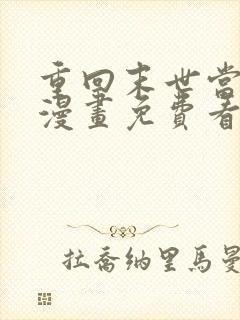 重回末世當
漫畫免費看
拉喬納里馬曼